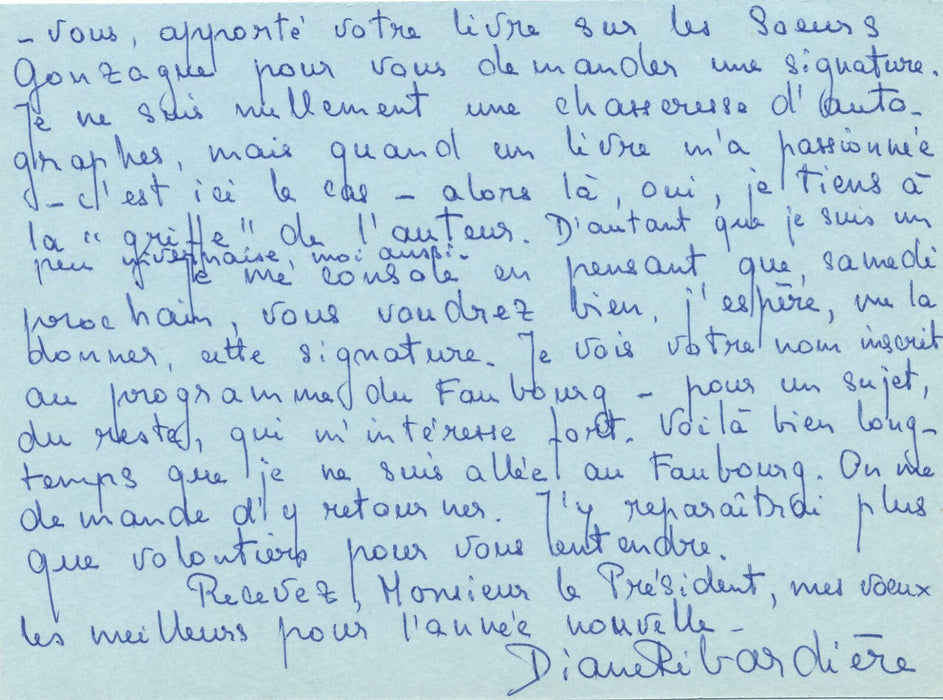 - vous, apporté votre livre sur les Soeurs
Gonzague pour vous demander une signature.
Je ne suis nullement une chasseresse d'auto-
graphes, mais quand un livre m'a passionnée
- c'est ici le cas - alors là, oui, je tiens à
la "griffe" de l'auteur. D'autant que je suis un
peu nivernaise, moi aussi.
Je me console en pensant que, samedi
prochain, vous voudrez bien, j'espère, me la
donner, cette signature. Je vois votre nom inscrit
au programme du Faubourg - pour un sujet,
du reste, qui m'intéresse fort. Voilà bien long-
temps que je ne suis allée au Faubourg. On me
demande d'y retourner. J'y reparaîtrai plus
que volontiers pour vous entendre.
Recevez, Monsieur le Président, mes voeux
les meilleurs pour l'année nouvelle -
Diane Ribardière